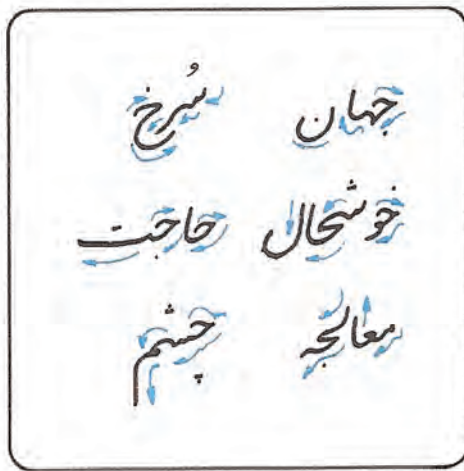 جهان سُرخ
خوشحال حاجت
معالجه چشم